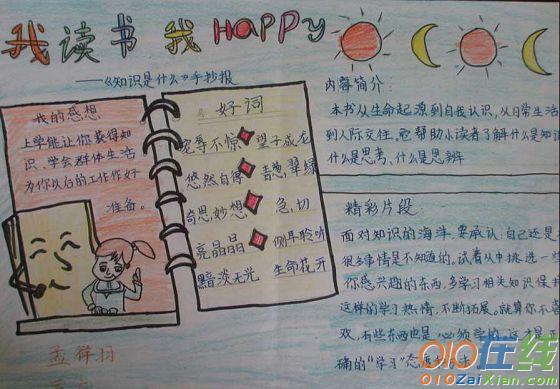 我读书 我 HAPPY
——《知识是什么》手抄报
我的感想
上学能让你获得知
识、学会群体生活
为你以后的工作作好
准备。
好词
宠辱不惊 望子成龙
悠然自得 青葱翠绿
奇思妙想 急切
亮晶晶 侧耳聆听
黯淡无光 生命花开
内容简介:
本书从生命起源到自我认识,从日常生活
到人际交往。它帮助小读者了解什么是知识
什么是思考、什么是思辨
精彩片段:
面对知识的海洋,要承认:自己还是
很多事情是不知道的,试着从中挑选一些
你感兴趣的东西,多学习相关知识保持
这样的学习热情,不断拓展。就算你不喜
欢,有些东西也是必须学的,这才是正
确的"学习"态度
孟
010在线
010ZaiXian.com